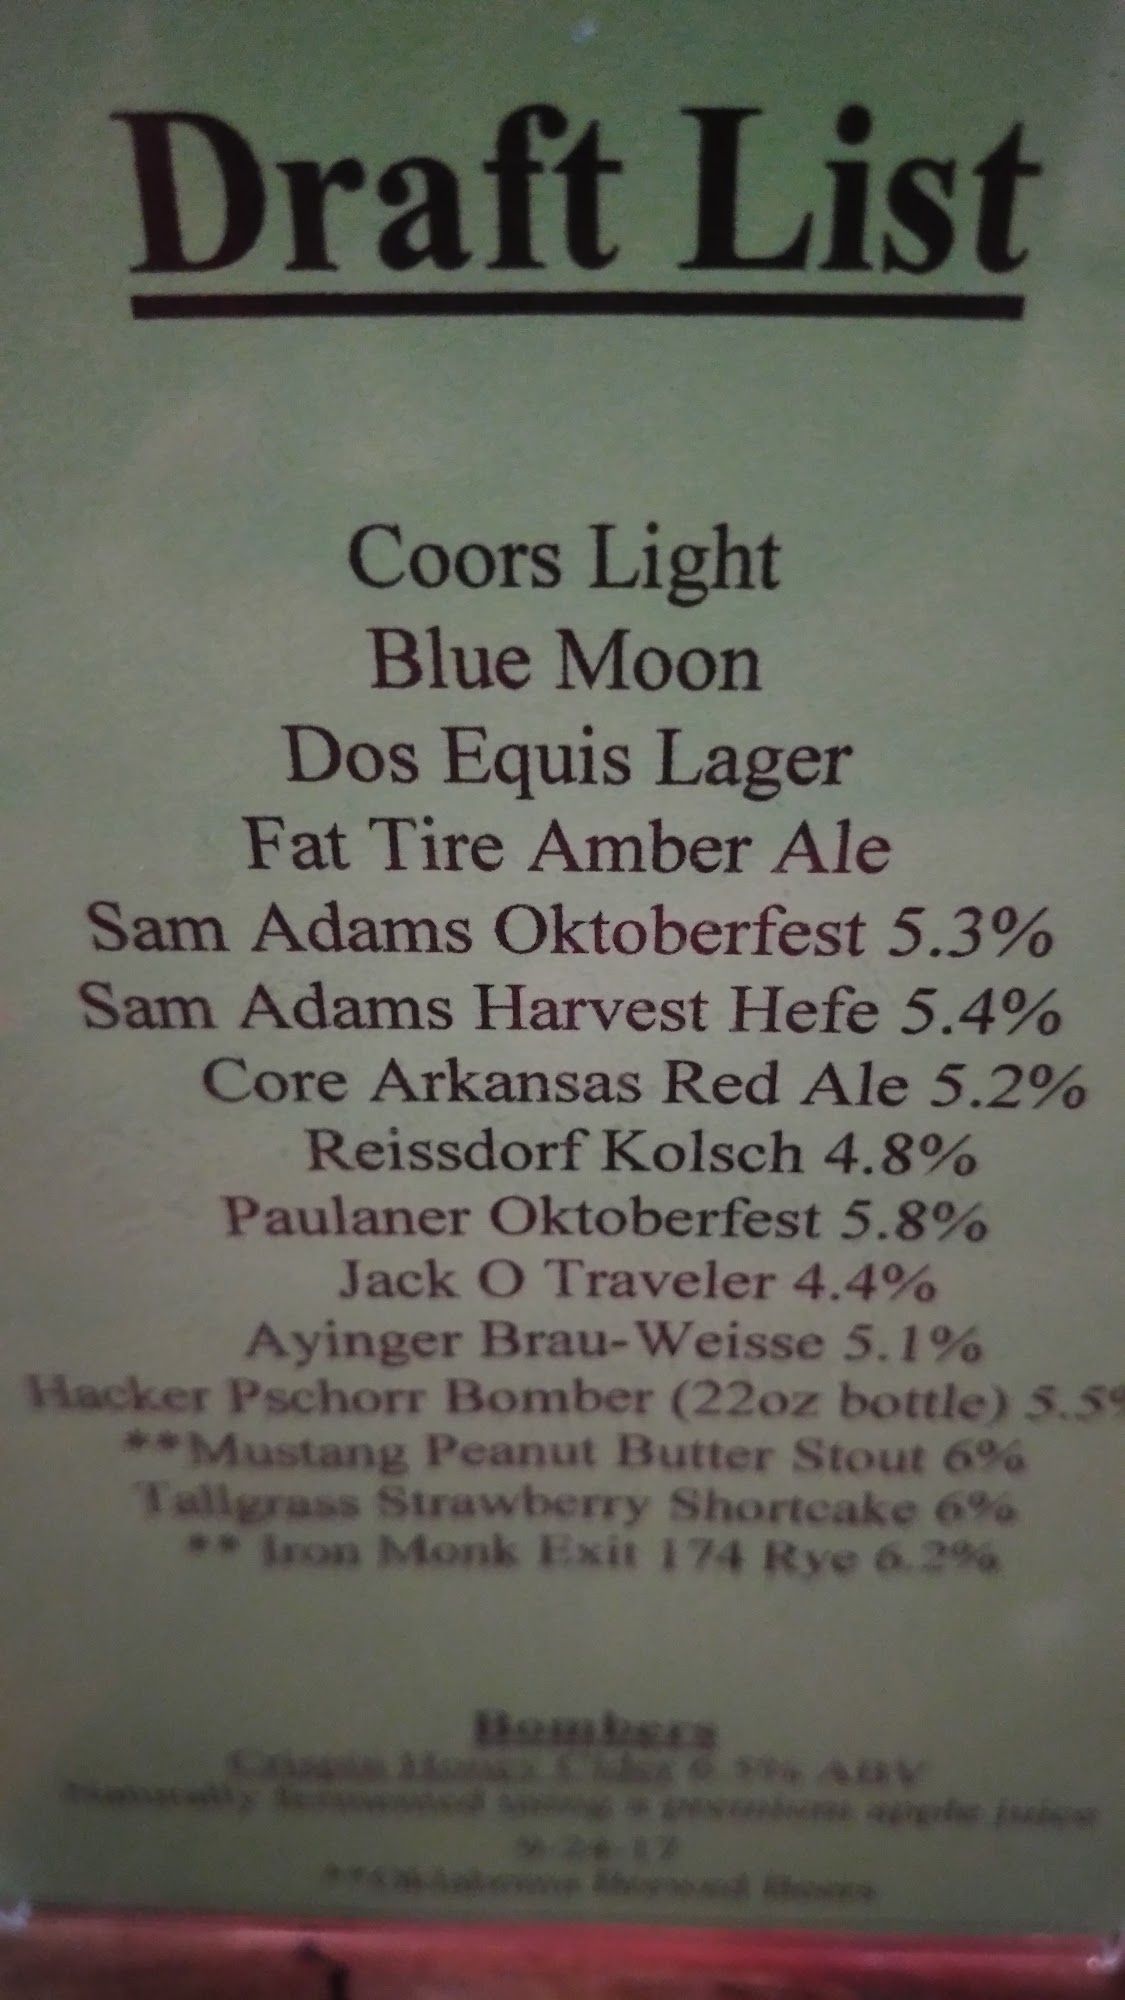 Draft List
Coors Light
Blue Moon
Dos Equis Lager
Fat Tire Amber Ale
Sam Adams Oktoberfest 5.3%
Sam Adams Harvest Hefe 5.4%
Core Arkansas Red Ale 5.2%
Reissdorf Kolsch 4.8%
Paulaner Oktoberfest 5.8%
Jack O Traveler 4.4%
Ayinger Brau-Weisse 5.1%
Hacker Pschorr Bomber (22oz bottle) 5.5%
**Mustang Peanut Butter Stout 6%
Tallgrass Strawberry Shortcake 6%
** Iron Monk Exit 174 Rye 6.2%
Bombers
Crispin Honey Cider ABV
Naturally fermented using a premium apple juice